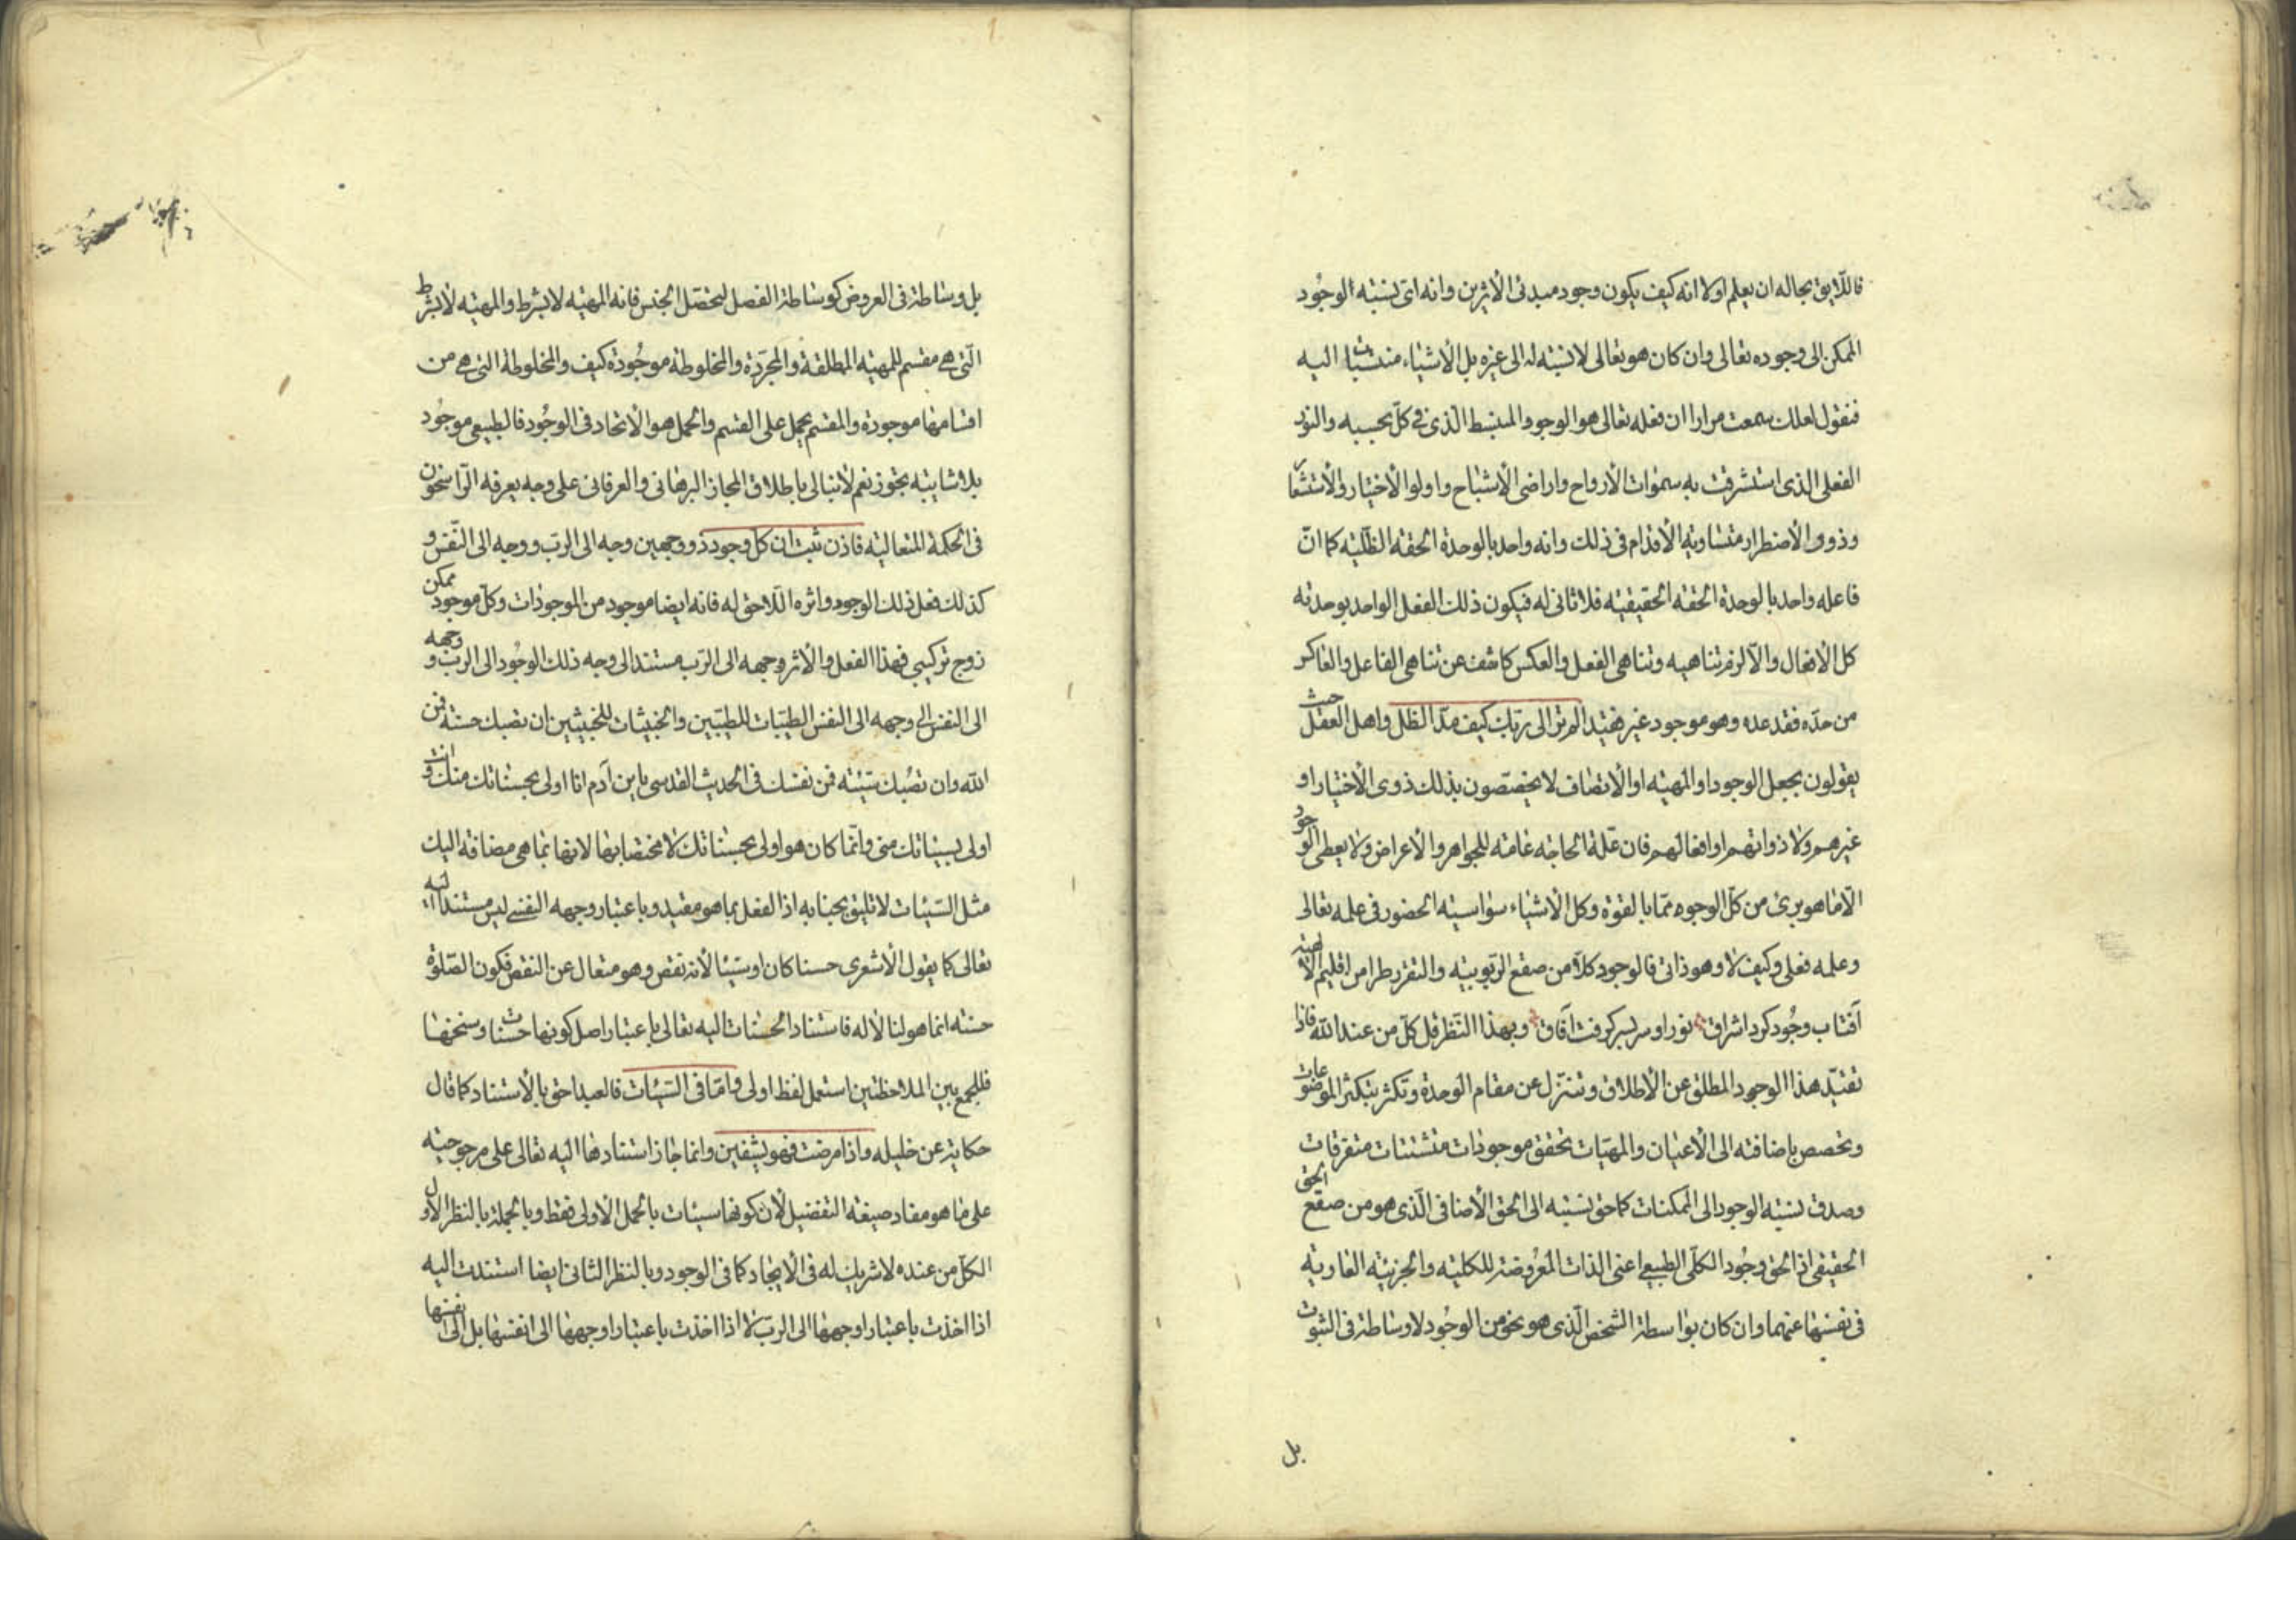 فاللایق بحاله ان یعلم اولا انه کیف یکون وجود مبدئ الأثرین وانه ای نسبته الوجود
الممکن الی وجوده تعالی وان کان هو تعالی لا نسبته له الی غیره بل الأشیاء منتسبات الیه
فنقول لعلک سمعت مرارا ان فعله تعالی هو الوجود المنبسط الّذی فی کلّ بحسبه والنور
الفعلی الذی استشرقت به سموات الأرواح واراضی الأشباح واولوا الأختیار والأستشعار
وذوو الأضطرار متساویة الأقدام فی ذلک وانه واحد بالوحدة الحقه الظلّیه کما انّ
فاعله واحد بالوحدة الحقه الحقیقیه فلا ثانی له فیکون ذلک الفعل الواحد بوحدته
کل الأفعال والّا لزم تناهیه وتناهی الفعل والعکس کاشف عن تناهی الفاعل والعاکس
من حدّه فقد عده وهو موجود غیر فقید الم تر الی ربّک کیف مدّ الظل واهل العقل حیث
یقولون بجعل الوجود او المهیّه او الأتصاف لا یخصّصون بذلک ذوی الأختیار او
غیرهم ولا ذواتهم او افعالهم فان علّة الحاجه عامّه للجواهر والأعراض ولا یعطی الوجود
الّا ما هو بریء من کلّ الوجوه ممّا بالقوة وکل الأشیاء سواسیّة الحضور فی علمه تعالی
وعلمه فعلی وکیف لا وهو ذاتی فالوجود کلّا من صقع الربوبیّه والتقرر طرا من اقلیم الألهیّه
آفتاب وجود کرد اشراق نور او سربسر گرفت آفاق وبهذا النّظر قل کلّ من عند اللّه فاذا
تقیّد هذا الوجود المطلق عن الأطلاق وتنزّل عن مقام الوحدة وتکثر بتکثر الموضوعات
وتخصص باضافته الی الأعیان والمهیّات تحقق موجودات متشتتات متفرقات
وصدق نسبته الوجود الی الممکنات کما حق نسبته الی الحق الأضافی الّذی هو من صقع الحق
الحقیقی اذ الحق وجود الکلّی الطبیعی اعنی الذات المعروضة للکلیّه والجزئیّه العاریه
فی نفسها عنهما وان کان بواسطة الشخص الّذی هو نحو من الوجود لا وساطة فی الثبوت
بل
بل وساطة فی العروض کوساطة الفصل لتحصّل الجنس فانه المهیّه لا بشرط والمهیّه لا بشرط
الّتی هی مقسم للمهیّه المطلقة والمجرّدة والمخلوطة موجودة کیف والمخلوطة التی هی من
اقسامها موجودة والمقسم یحمل علی القسم والحمل هو الأتحاد فی الوجود فالطبیعی موجود
بلا شایبته تجوّز نعم لا نبالی باطلاق المجاز البرهانی والعرفانی علی وجه یعرفه الرّاسخون
فی الحکمة المتعالیه فاذن ثبت ان کلّ وجود ذو وجهین وجه الی الرب ووجه الی النّفس و
کذلک فعل ذلک الوجود واثره اللّاحق له فانه ایضا موجود من الموجودات وکلّ موجود ممکن
زوج ترکیبی فهذا الفعل والأثر وجهه الی الرّب مستند الی وجه ذلک الوجود الی الربّ و وجهه
الی النفس الی وجهه الی النفس الطیّبات للطیّبین والخبیثات للخبیثین ان تصبک حسنة فمن
اللّه وان تصبک سیّئة فمن نفسک فی الحدیث القدسی یابن آدم انا اولی بحسناتک منک وانت
اولی بسیئاتک منی وانّما کان هو اولی بحسناتک لا مختصا بها لانها بما هی مضافة الیک
مثل السّیئات لا تلیق بجنابه اذ الفعل بما هو مقید وباعتبار وجهه النفسی لیس مستندا الیه
تعالی کما یقول الأشعری حسنا کان او سیّئا لأنه نقص وهو متعال عن النقص فکون الصّلوة
حسنه انما هو لنا لا له فاستناد الحسنات الیه تعالی باعتبار اصل کونها حسنات وسنخها
فللجمع بین الملاحظتین استعمل لفظ اولی وامّا فی السّیئات فالعبد احق بالأستناد کما قال
حکایة عن خلیله واذا مرضت فهو یشفین وانما جاز استنادها الیه تعالی علی مرجوحیّه
علی ما هو مفاد صیغة التفضیل لأن کونها سیئات بالحمل الأولی فقط وبالجملة بالنظر الأول
الکلّ من عنده لا شریک له فی الأیجاد کما فی الوجود وبالنظر الثانی ایضا استندت الیه
اذا اخذت باعتبار اوجهها الی الربّ لا اذا اخذت باعتبار اوجهها الی انفسها بل الی انفسها